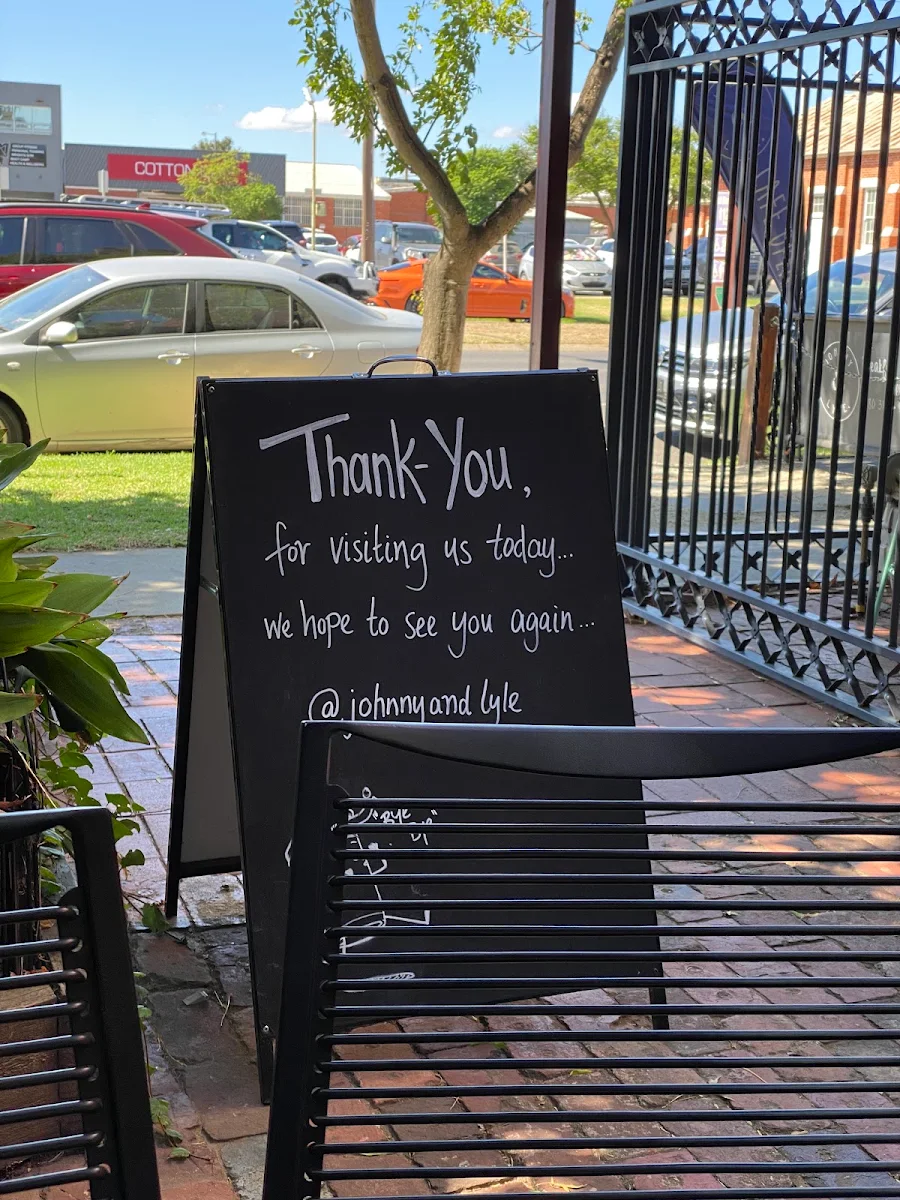 COTTON
Thank-You,
for visiting us today...
we hope to see you again...
@johnnyandlyle
"BYE